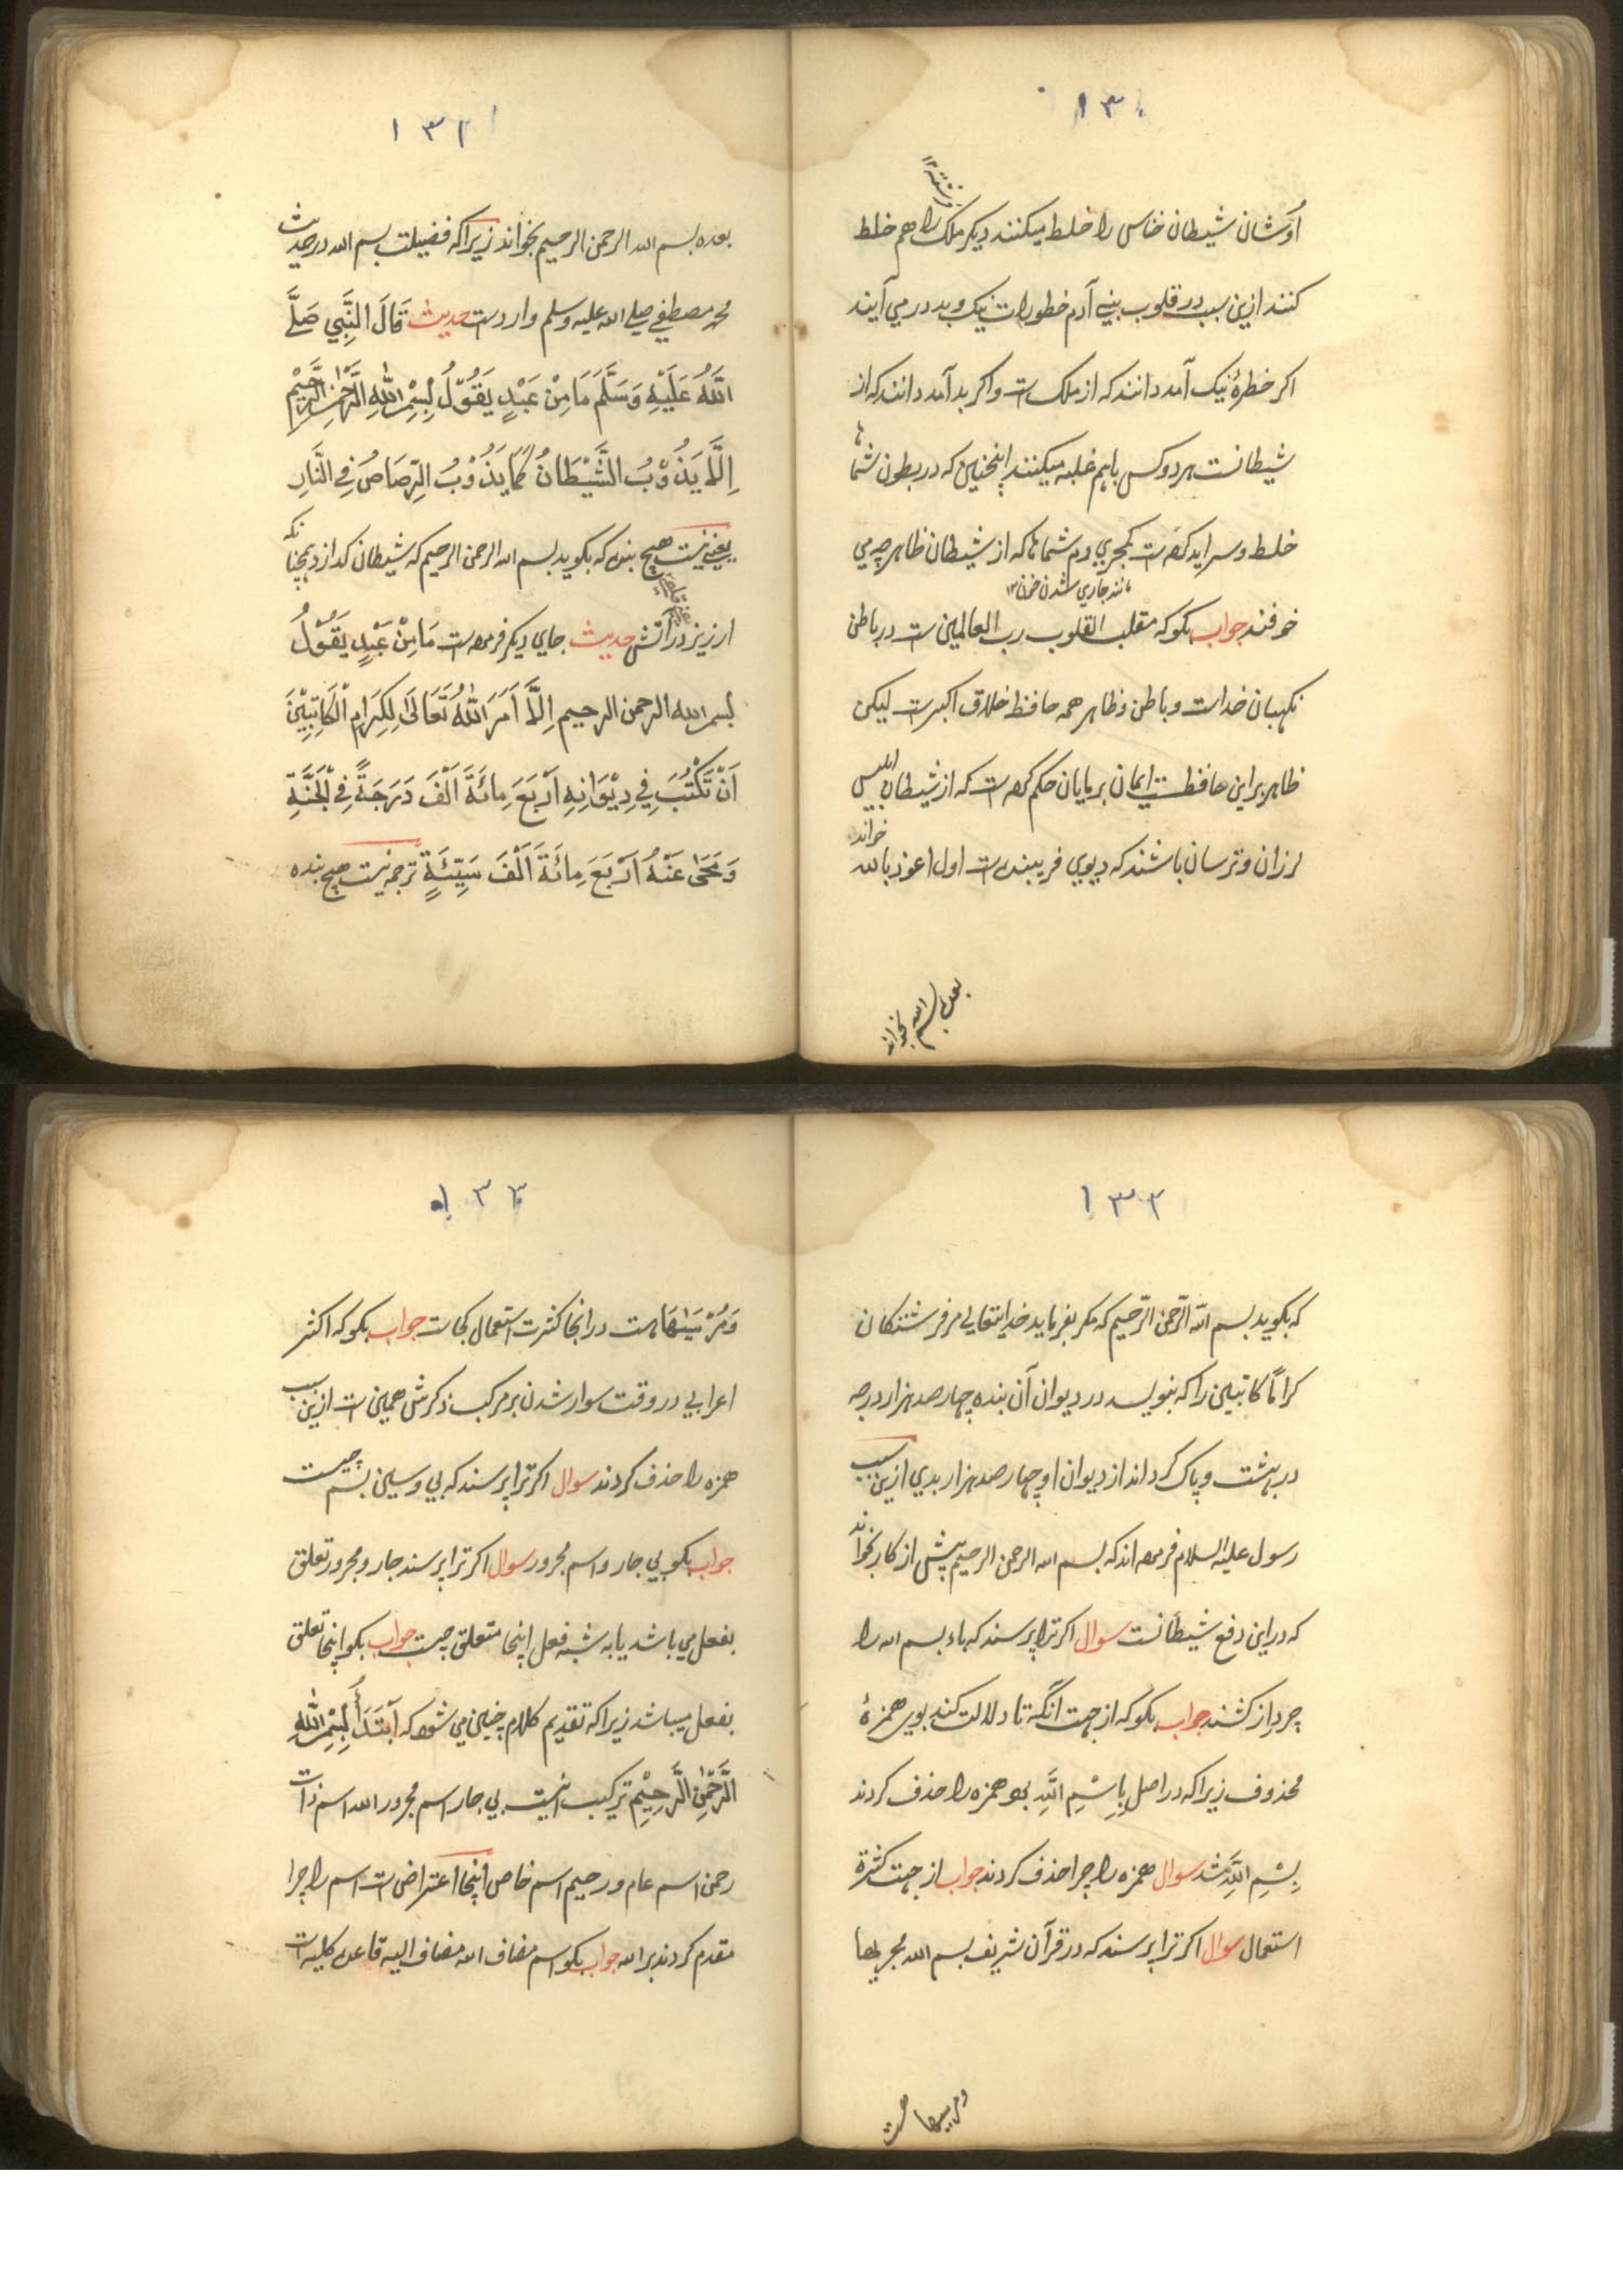 ١٣٠
اوشان شیطان خناس را خلط میکنند دیکر ملک را هم خلط
کنند ازین سبب در قلوب بنے آدم خطورات نیک و بد در می آیند
اکر خطرهٔ نیک آمد دانند که از ملک ست و اکر بد آمد دانند که از
شیطانست هر دو کس باهم غلبه میکنند اینچنین که در بطون شما
خلط و سراید کرده ست کمجری دم شمایا نرا که از شیطان ظاهر چه می
مانند جاري شدن خون ١٢
خوفند جواب بکو که مقلب القلوب رب العالمین ست در باطن
نکهبان خداست و باطن و ظاهر همه حافظ خلاق اکبرست لیکن
ظاهر براین حافظت ایمان بر مایان حکم کرده ست که از شیطان ابلیس
لرزان و ترسان باشند که دیوي فریبنده ست اول اعوذ بالله خواند
بعده بسم الله بخواند
١٣١
بعده بسم الله الرحمن الرحیم بخواند زیرا که فضیلت بسم الله در حدیث
محمد مصطفي صلے الله علیه وسلم واردست حدیث قَالَ النَّبِي صَلَّے
اللّٰهُ عَلَيْهِ وَسَلَّمَ مَا مِنْ عَبْدٍ يَقُوْلُ بِسْمِ اللّٰهِ الرَّحْمٰنِ الرَّحِيْمِ
اِلَّا يَذُوْبُ الشَّيْطَانُ كَمَا يَذُوْبُ الرِّصَاصُ فِي النَّارِ
یعنے نیست هیچ بنده که بکوید بسم الله الرحمن الرحیم که شیطان کدازد همچنانکه
ارزیز در آتش حدیث جاي دیکر فرموده ست مَا مِنْ عَبْدٍ يَقُوْلُ
بسم الله الرحمن الرحیم اِلَّا اَمَرَ اللّٰهُ تَعَالَىٰ لِكِرَامِ الْكَاتِبِيْنَ
اَنْ تَكْتُبَ فِي دِيْوَانِهِ اَرْبَعَ مِائَةَ اَلْفَ دَرَجَةً فِي الْجَنَّةِ
وَ مَحٰى عَنْهُ اَرْبَعَ مِائَةَ اَلْفَ سَيِّئَةٍ ترجمه نیست هیچ بنده
١٣٢
که بکوید بسم الله الرَّحمٰن الرَّحیم که مکر بفرماید خدایتعالی مر فرشتکان
کراماً کاتبین را که بنویسد در دیوان آن بنده چهار صد هزار درجه
در بهشت و پاک کرداند از دیوان او چهار صد هزار بدي ازین سبب
رسول علیه السلام فرموده اند که بسم الله الرحمن الرحیم پیش از کار بخواند
که دراین دفع شیطانست سوال اکر ترا پرسند که باء بسم الله را
چرا دراز کشند جواب بکو که از جهت انکه تا دلالت کند بوي همزهٔ
محذوف زیرا که در اصل بِاِسْمِ اللَّهِ بود همزه را حذف کردند
بِسْمِ اللَّهِ شد سوال همزه را چرا حذف کردند جواب از جهت کثرة
استعمال سوال اکر ترا پرسند که در قرآن شریف بسم الله مجریها
ومرسیها هست
١٣٣
وَمُرْسٰىهَا هست درانجا کثرت استعمال کجاست جواب بکو که اکثر
اعرابی در وقت سوار شدن بر مرکب ذکرش همین ست ازین سبب
همزه را حذف کردند سوال اکر ترا پرسند که بی و سین بسم چیست
جواب بکو بی جار و اسم مجرور سوال اکر ترا پرسند جار و مجرور تعلق
بفعل می باشد یا به شبه فعل اینجا متعلق چیست جواب بکو اینجا تعلق
بفعل میباشد زیرا که تقدیم کلام چنین می شود که اَبْتَدَأُ بِسْمِ اللّٰهِ
الرَّحْمٰنِ الرَّحِيْمِ ترکیب اینست بی جار اسم مجرور الله اسم ذات
رحمن اسم عام و رحیم اسم خاص اینجا اعتراض ست اسم را چرا
مقدم کردند بر الله جواب بکو اسم مضاف الله مضاف الیه قاعده کلیه است